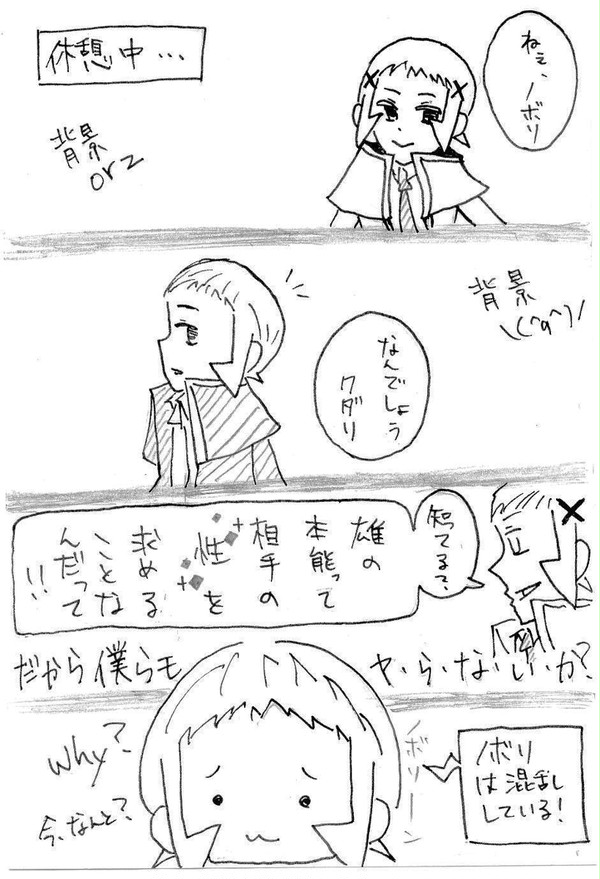 休憩中…
ねぇ、ノボリ
背景
orz
背景
\(^q^)/
なんでしょう
クダリ
知ってる?
雄の
本能って
相手の
性を
求める
ことな
んだって
!!
だから僕らも
ヤ・ら・な・い・か?
ノボリーン
ノボリ
は混乱
している!
Why?
今、なんと?